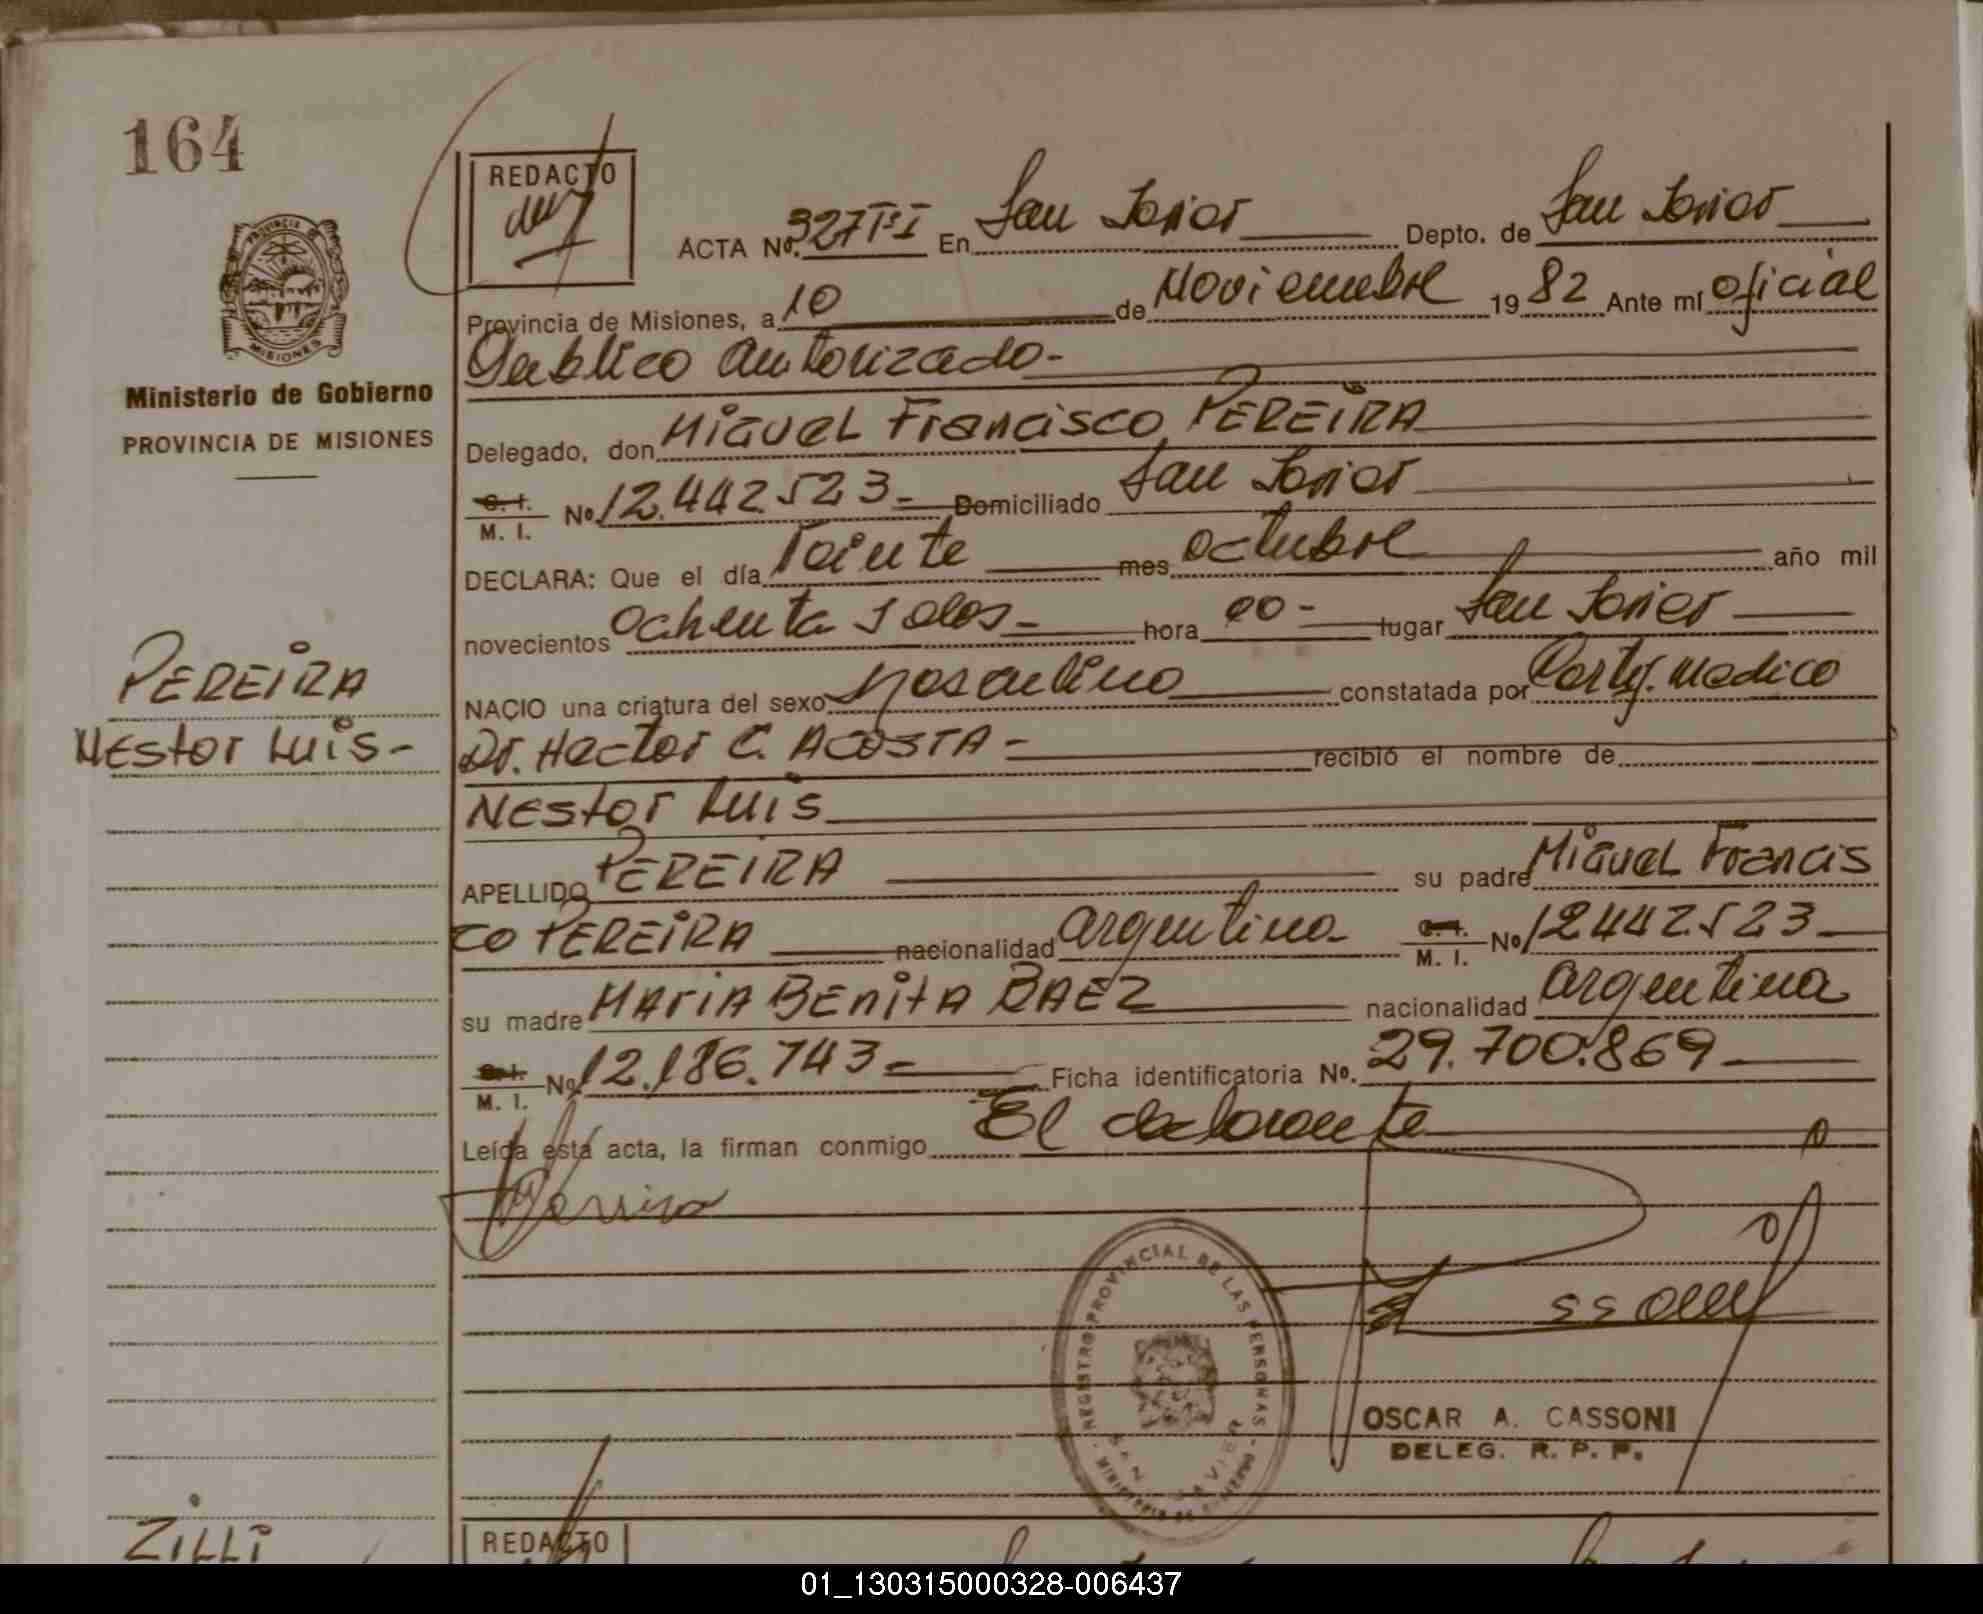 164
REDACTO
ACTA No. 327 Tº I En San Javier Depto. de San Javier
Provincia de Misiones, a 10 de Noviembre 19 82 Ante mí oficial
Publico autorizado-
PROVINCIA MISIONES
Ministerio de Gobierno
PROVINCIA DE MISIONES
Delegado, don Miguel Francisco PEREIRA
C. I. M. I. No 12.442.523- Domiciliado San Javier
DECLARA: Que el día veinte mes octubre año mil
novecientos ochenta y dos- hora 00- lugar San Javier
PEREIRA
Nestor Luis-
NACIO una criatura del sexo masculino constatada por Certif. Medico
Dr. Hector C. ACOSTA- recibió el nombre de
Nestor Luis
APELLIDO PEREIRA su padre Miguel Francis
co PEREIRA nacionalidad argentina- C. I. M. I. No 12442.523-
su madre MARIA BENITA BAEZ nacionalidad argentina
C. I. M. I. No 12.186.743- Ficha identificatoria No. 29.700.869-
Leída esta acta, la firman conmigo El declarante
Pereira
REGISTRO PROVINCIAL DE LAS PERSONAS
MINISTERIO DE GOBIERNO
SAN JAVIER
OSCAR A. CASSONI
DELEG. R. P. P.
ZILLI
REDACTO
01_130315000328-006437